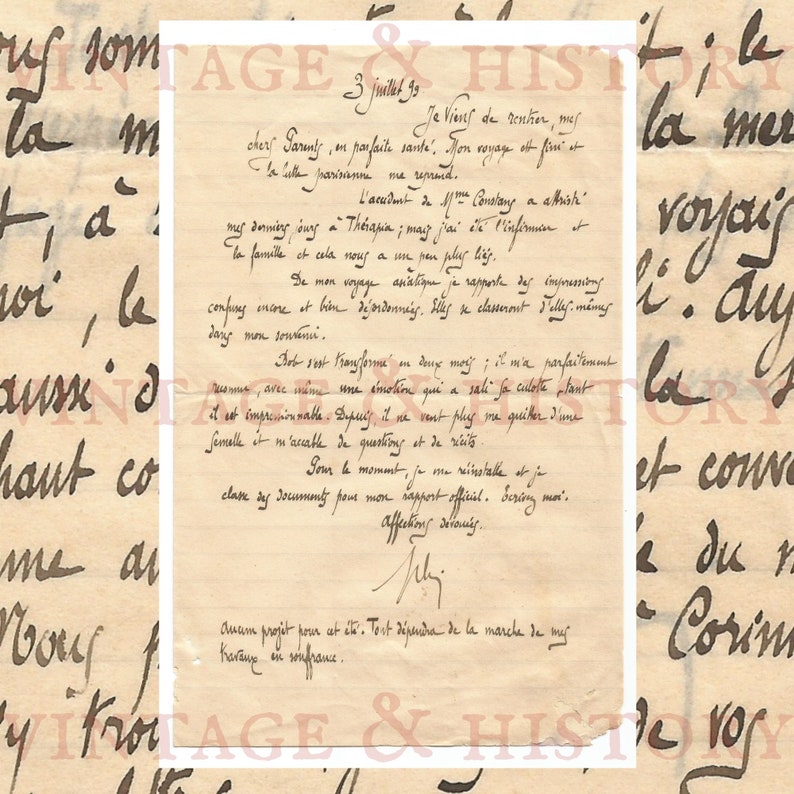 3 juillet 99
Je Viens de rentrer, mes
chers Parents, en parfaite santé. Mon voyage est fini et
la lutte parisienne me reprend.
L'accident de Mme Constans a attristé
mes derniers jours à Thérapia ; mais j'ai été l'infirmier et
la famille et cela nous a un peu plus liés.
De mon voyage asiatique je rapporte des impressions
confuses encore et bien désordonnées. Elles se classeront d'elles-mêmes
dans mon souvenir.
Bob s'est transformé en deux mois ; il m'a parfaitement
reconnu, avec même une émotion qui a sali sa culotte, tant
il est impressionnable. Depuis il ne veut plus me quitter d'une
semelle et m'accable de questions et de récits.
Pour le moment, je me réinstalle et je
classe des documents pour mon rapport officiel. Ecrivez moi.
Affections dévouées.
aucun projet pour cet été. Tout dépendra de la marche de mes
travaux en souffrance.
VINTAGE & HISTORY
VINTAGE & HISTORY
VINTAGE & HISTORY